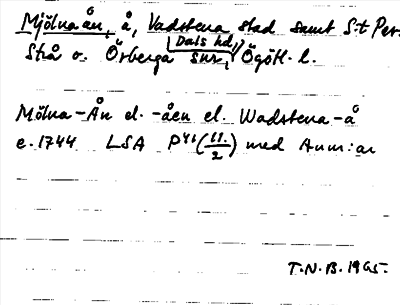 Mjölnaån, å, Vadstena stad samt S:t Per,
Strå o. Örberga snr, Ögötl. l.
Dals hd,
Mölna-Ån el. -åen el. Wadstena-å
e. 1744 LSA P41(11/2) med Anm:ar
T.N.B. 1965.